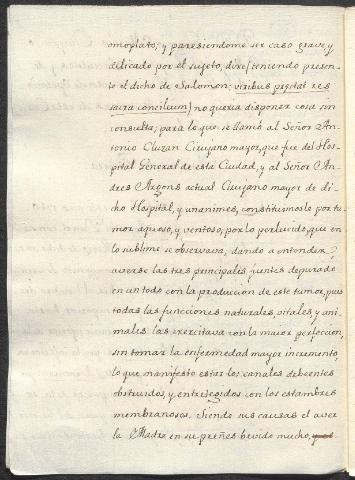 omoplato; y paresiendome ser caso grave, y
delicado por el sujeto, dixe (teniendo presen-
te el dicho de Salomon: viribus præstat res
sacra concilium) no queria disponer cosa sin
consulta; para lo que se llamó al Señor An-
tonio Cluzan Cirujano mayor, que fue del Hos-
pital General de esta Ciudad, y al Señor An-
dres Argons actual Cirujano mayor de di-
cho Hospital, y unanimes, constituimosle por tu-
mor aquoso, y ventoso, por lo perlucido, que en
lo sublime se observava; dando a entender
averse las tres principales juntas depurado
en un todo con la produccion de este tumor, pues
todas las funciones naturales, vitales, y ani-
males las exercitava con la maior perfeccion,
sin tomar la enfermedad mayor incremento,
lo que manifesto estar los canales deferentes
obstruidos, y entretegidos con los estambres
membranosos. Siendo sus causas el aver
la Madre en su preñes bevido mucho,